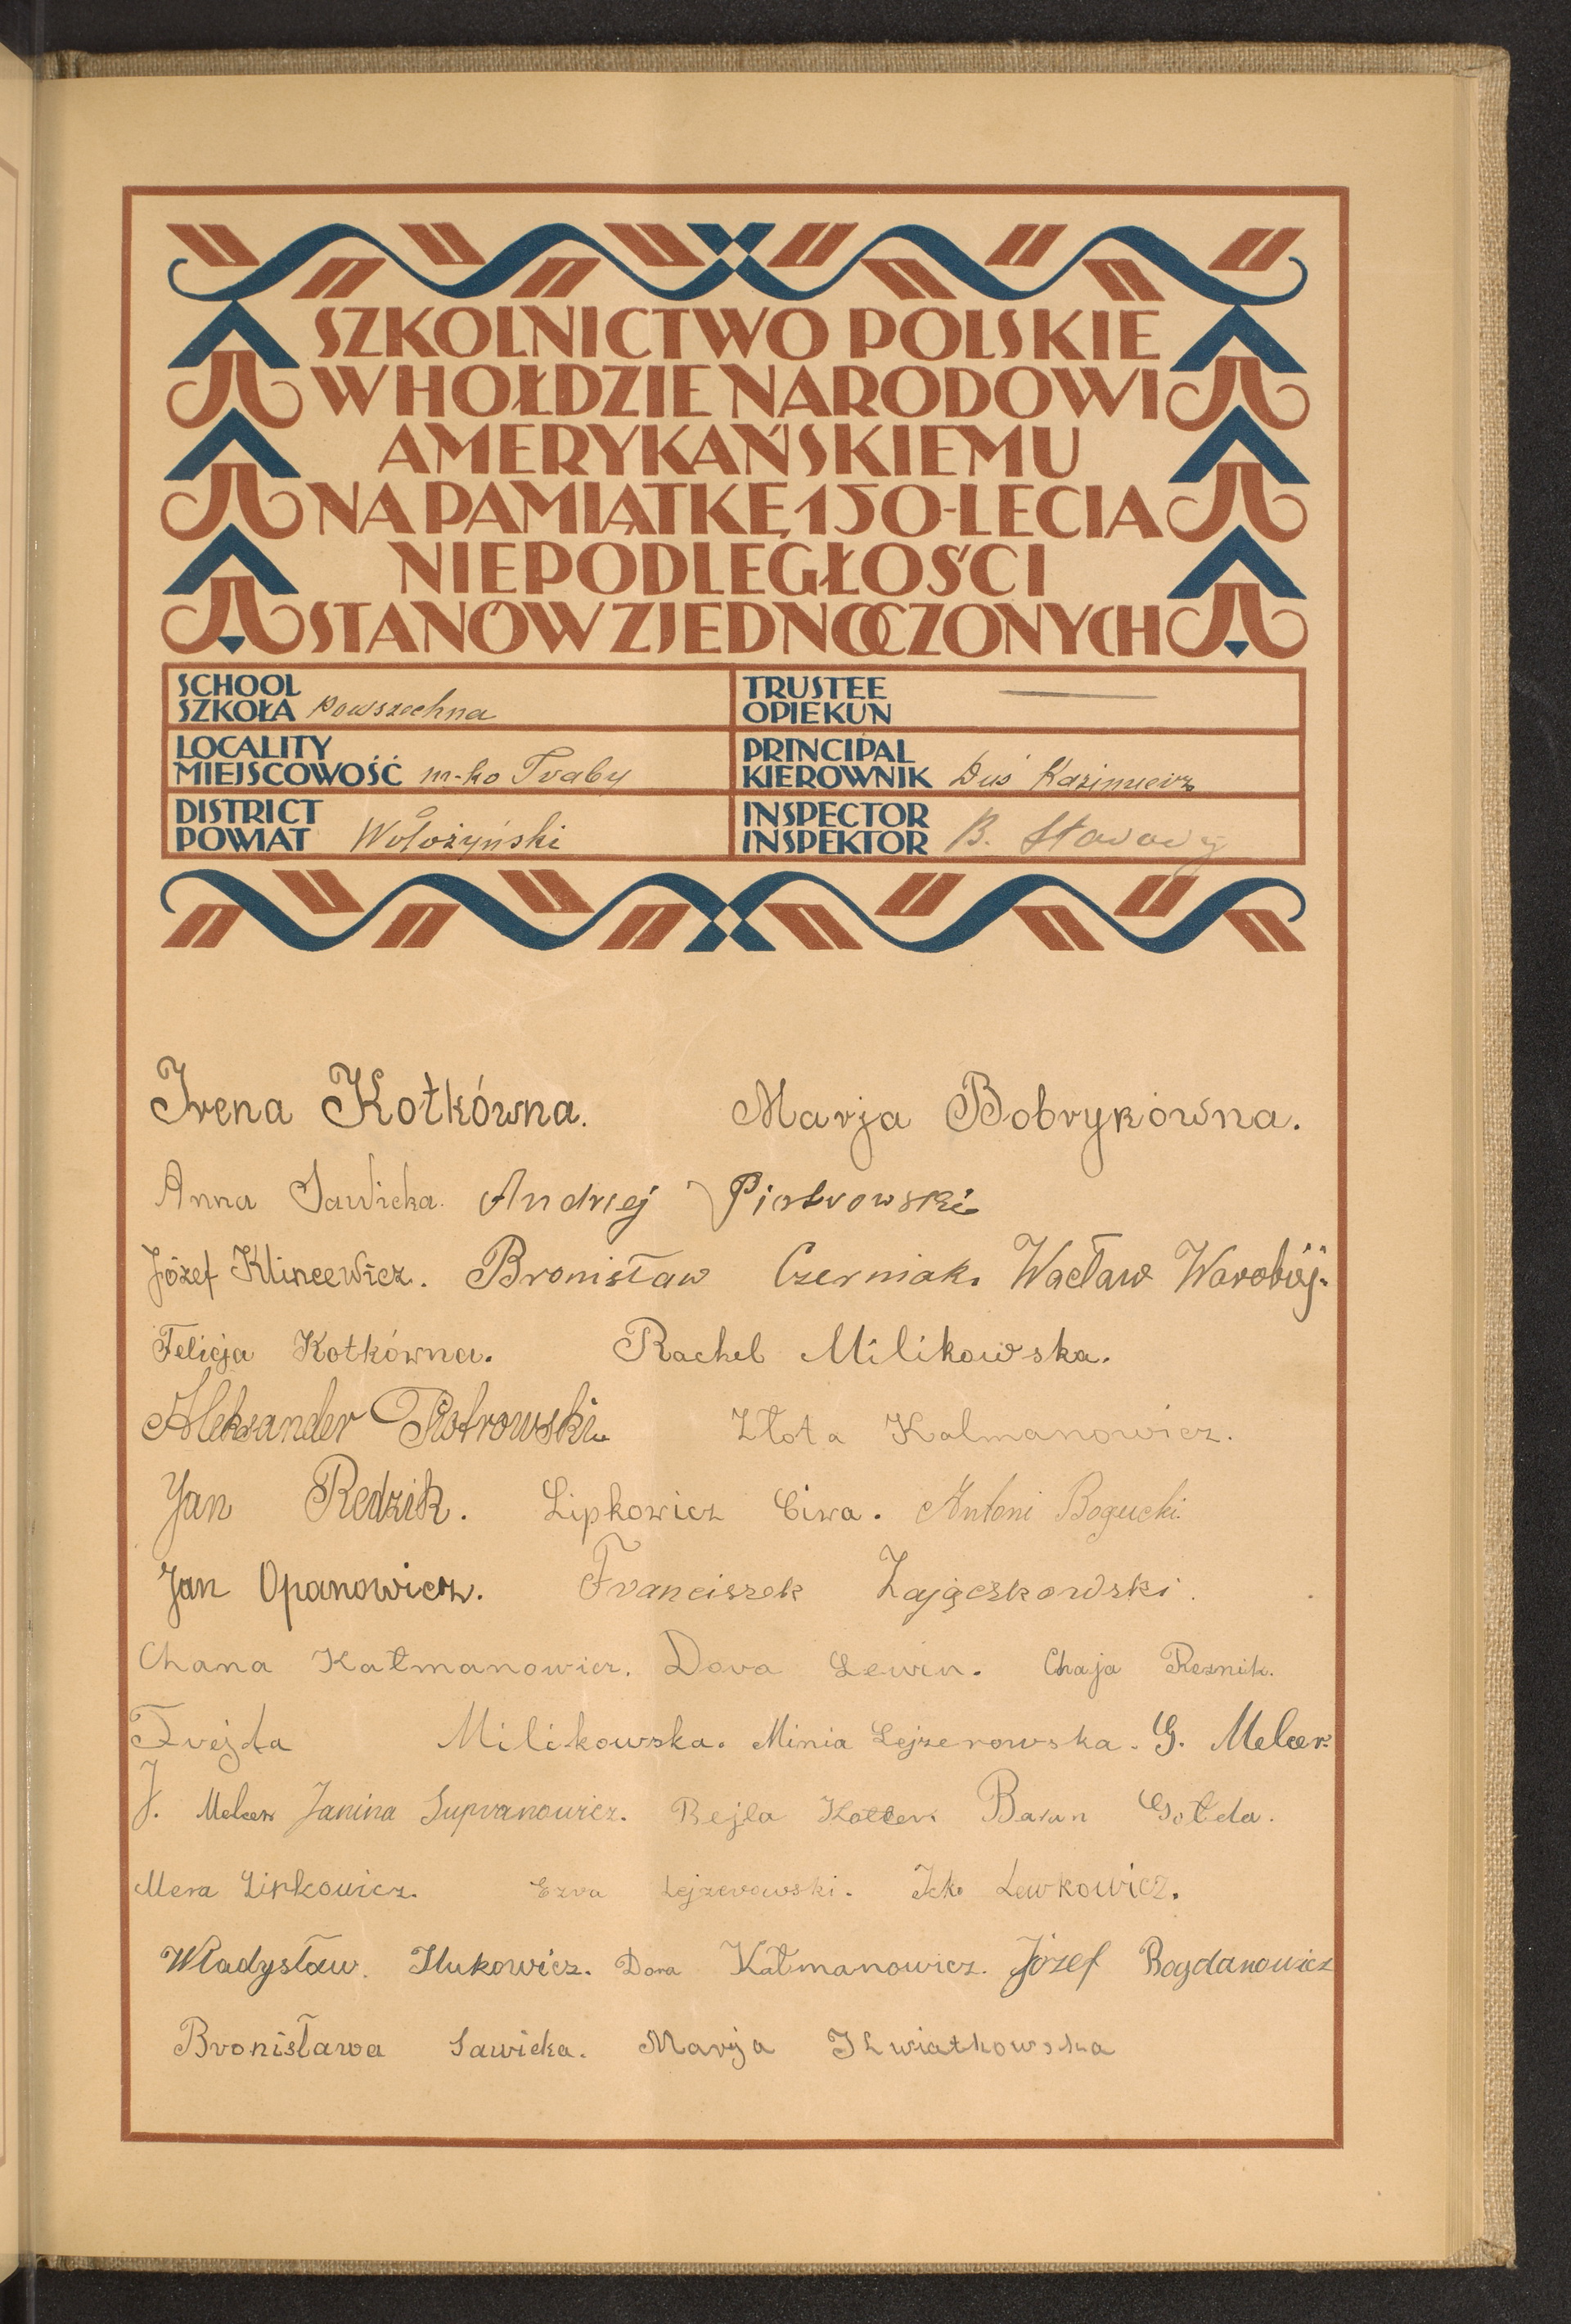 SZKOLNICTWO POLSKIE
W HOŁDZIE NARODOWI
AMERYKAŃSKIEMU
NA PAMIĄTKĘ 150-LECIA
NIEPODLEGŁOŚCI
STANÓW ZJEDNOCZONYCH
SCHOOL
SZKOŁA powszechna
TRUSTEE
OPIEKUN
LOCALITY
MIEJSCOWOŚĆ m-ko Traby
PRINCIPAL
KIEROWNIK Duś Kazimierz
DISTRICT
POWIAT Wołożyński
INSPECTOR
INSPEKTOR B.
Irena Kotkówna. Marja Bobrykówna.
Anna Sawicka. Andrzej Piotrowski
Józef Klincewicz. Bronisław Czerniak. Wacław Warobiój.
Felicja Kotkówna. Rachel Milikowska.
Aleksander Piotrowski. Złota Kalmanowicz.
Jan Redzik. Lipkowicz Ciwa. Antoni Bogucki.
Jan Opanowicz. Franciszek Zajączkowski.
Chana Kałmanowicz. Dora Lewin. Chaja Reznik.
Frejda Milikowska. Minia Lejzerowska. G. Melcer.
J. Melcer Janina Supranowicz. Rejla Kotler Baran Gołda.
Mera Lipkowicz. Ezra Lejzerowski. Icko Lewkowicz.
Władysław. Ilukowicz. Dora Kałmanowicz. Józef Bogdanowicz
Bronisława Sawicka. Marja Kwiatkowska